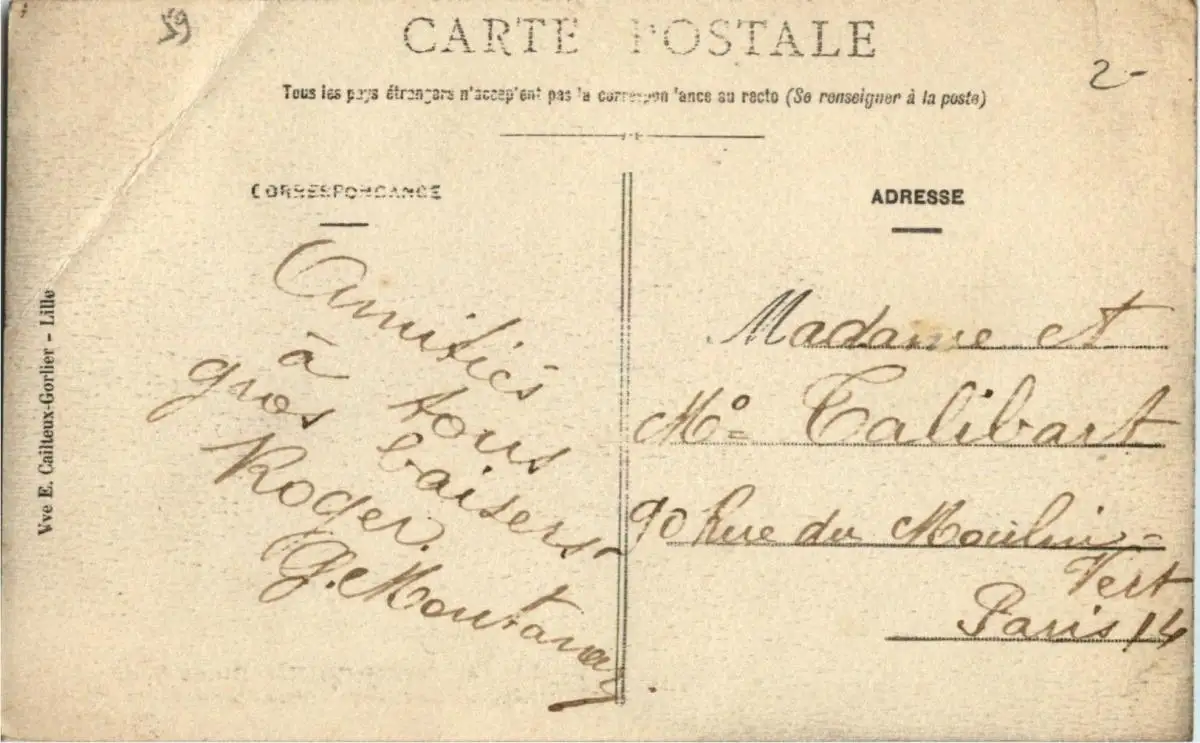 59
CARTE POSTALE
2-
Tous les pays étrangers n'acceptent pas la correspondance au recto (Se renseigner à la poste)
CORRESPONDANCE
Amitiés
à tous
gros baisers
Roger.
G. Montanay
ADRESSE
Madame et
Mº Talibart
90 Rue du Moulin-
Vert
Paris 14
Vve E. Cailteux-Gorlier - Lille